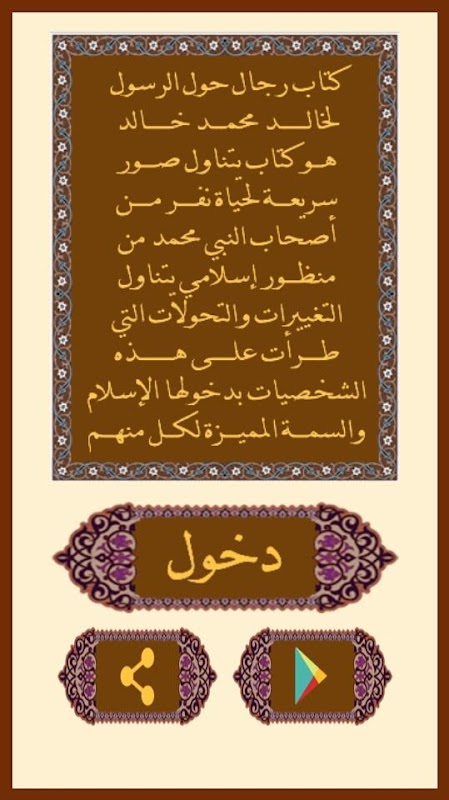 كتاب رجال حول الرسول
لخالد محمد خالد
هو كتاب يتناول صور
سريعة لحياة نفر من
أصحاب النبي محمد من
منظور إسلامي يتناول
التغييرات والتحولات التي
طرأت على هذه
الشخصيات بدخولها الإسلام
والسمة المميزة لكل منهم
دخول